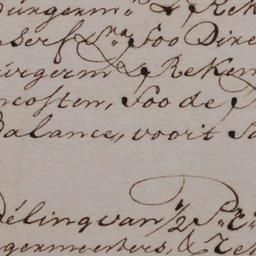 Burgerm.^rs & Rek
Soo Dire
Burgerm & Reken
ncosten, Soo de
Balance, voort S
deling van 1/2 P.Ct
germeesters, & Rek